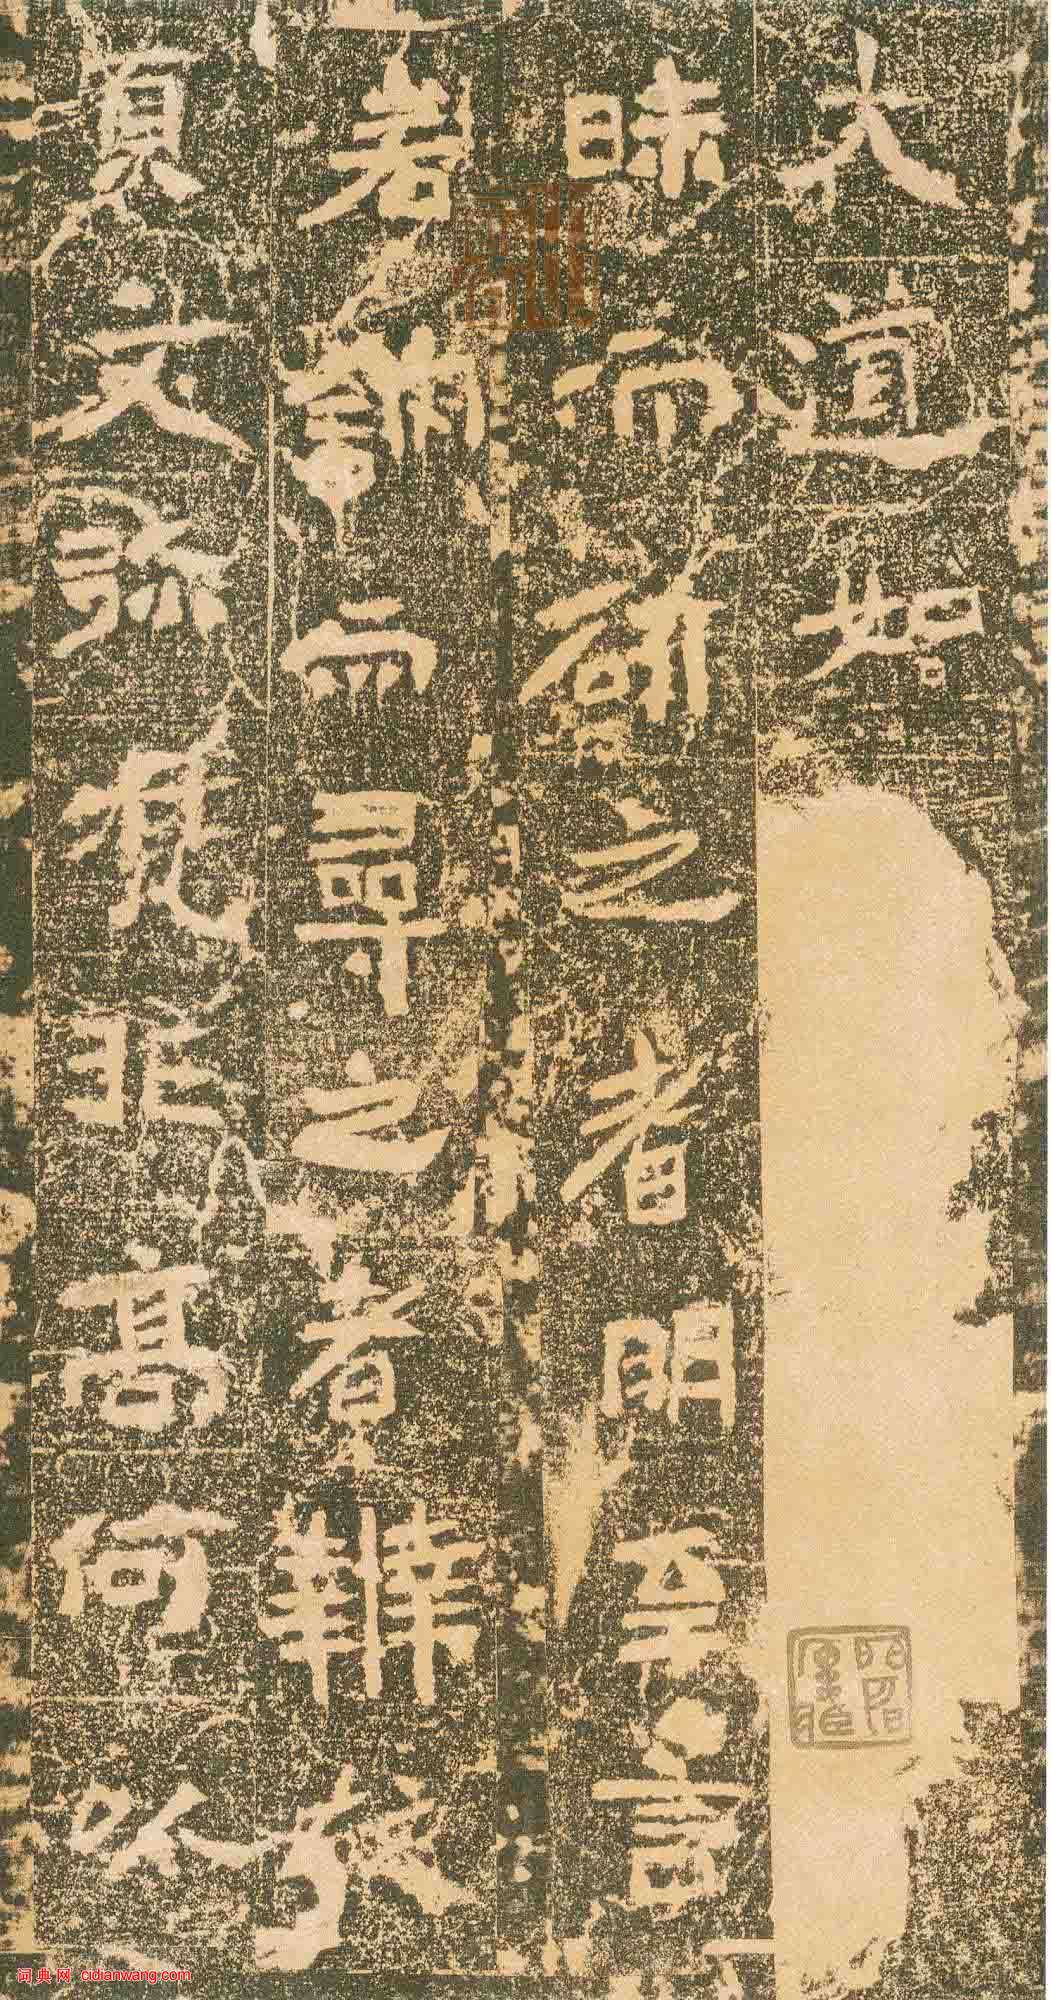 大道如
昧而研之者明至言
若訥而尋之者辯故
真文弥梵非高何以
词典网 cidianwang.com